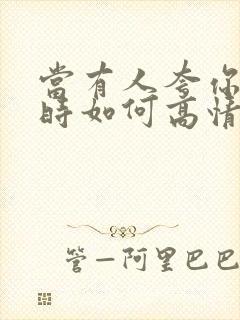 當有人夸你
時如何高情
管—阿里巴巴